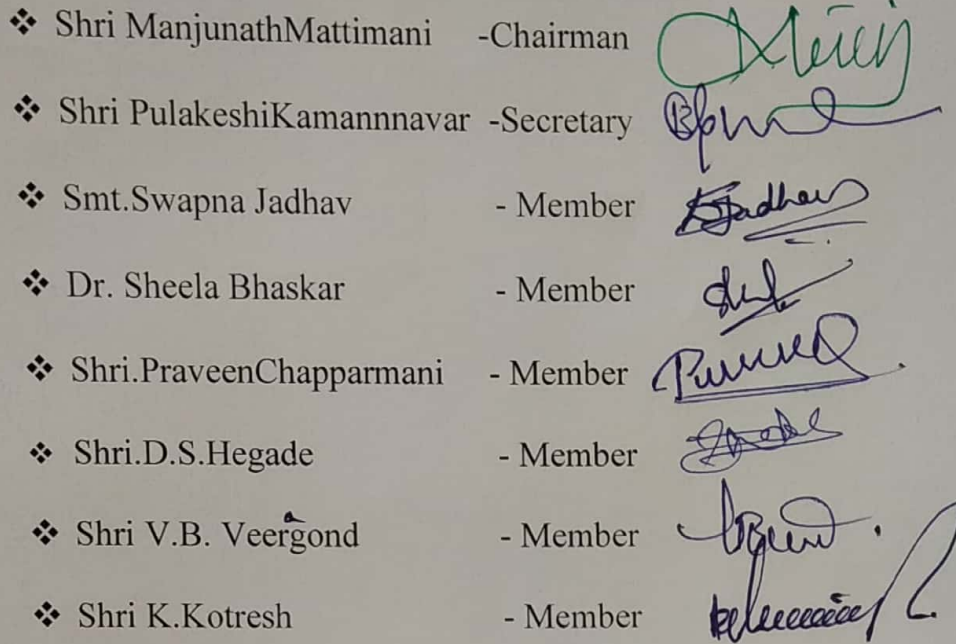 ❖ Shri ManjunathMattimani -Chairman
❖ Shri PulakeshiKamannnavar -Secretary
❖ Smt.Swapna Jadhav - Member Jadhav
❖ Dr. Sheela Bhaskar - Member
❖ Shri.PraveenChapparmani - Member
❖ Shri.D.S.Hegade - Member
❖ Shri V.B. Veergond - Member
❖ Shri K.Kotresh - Member